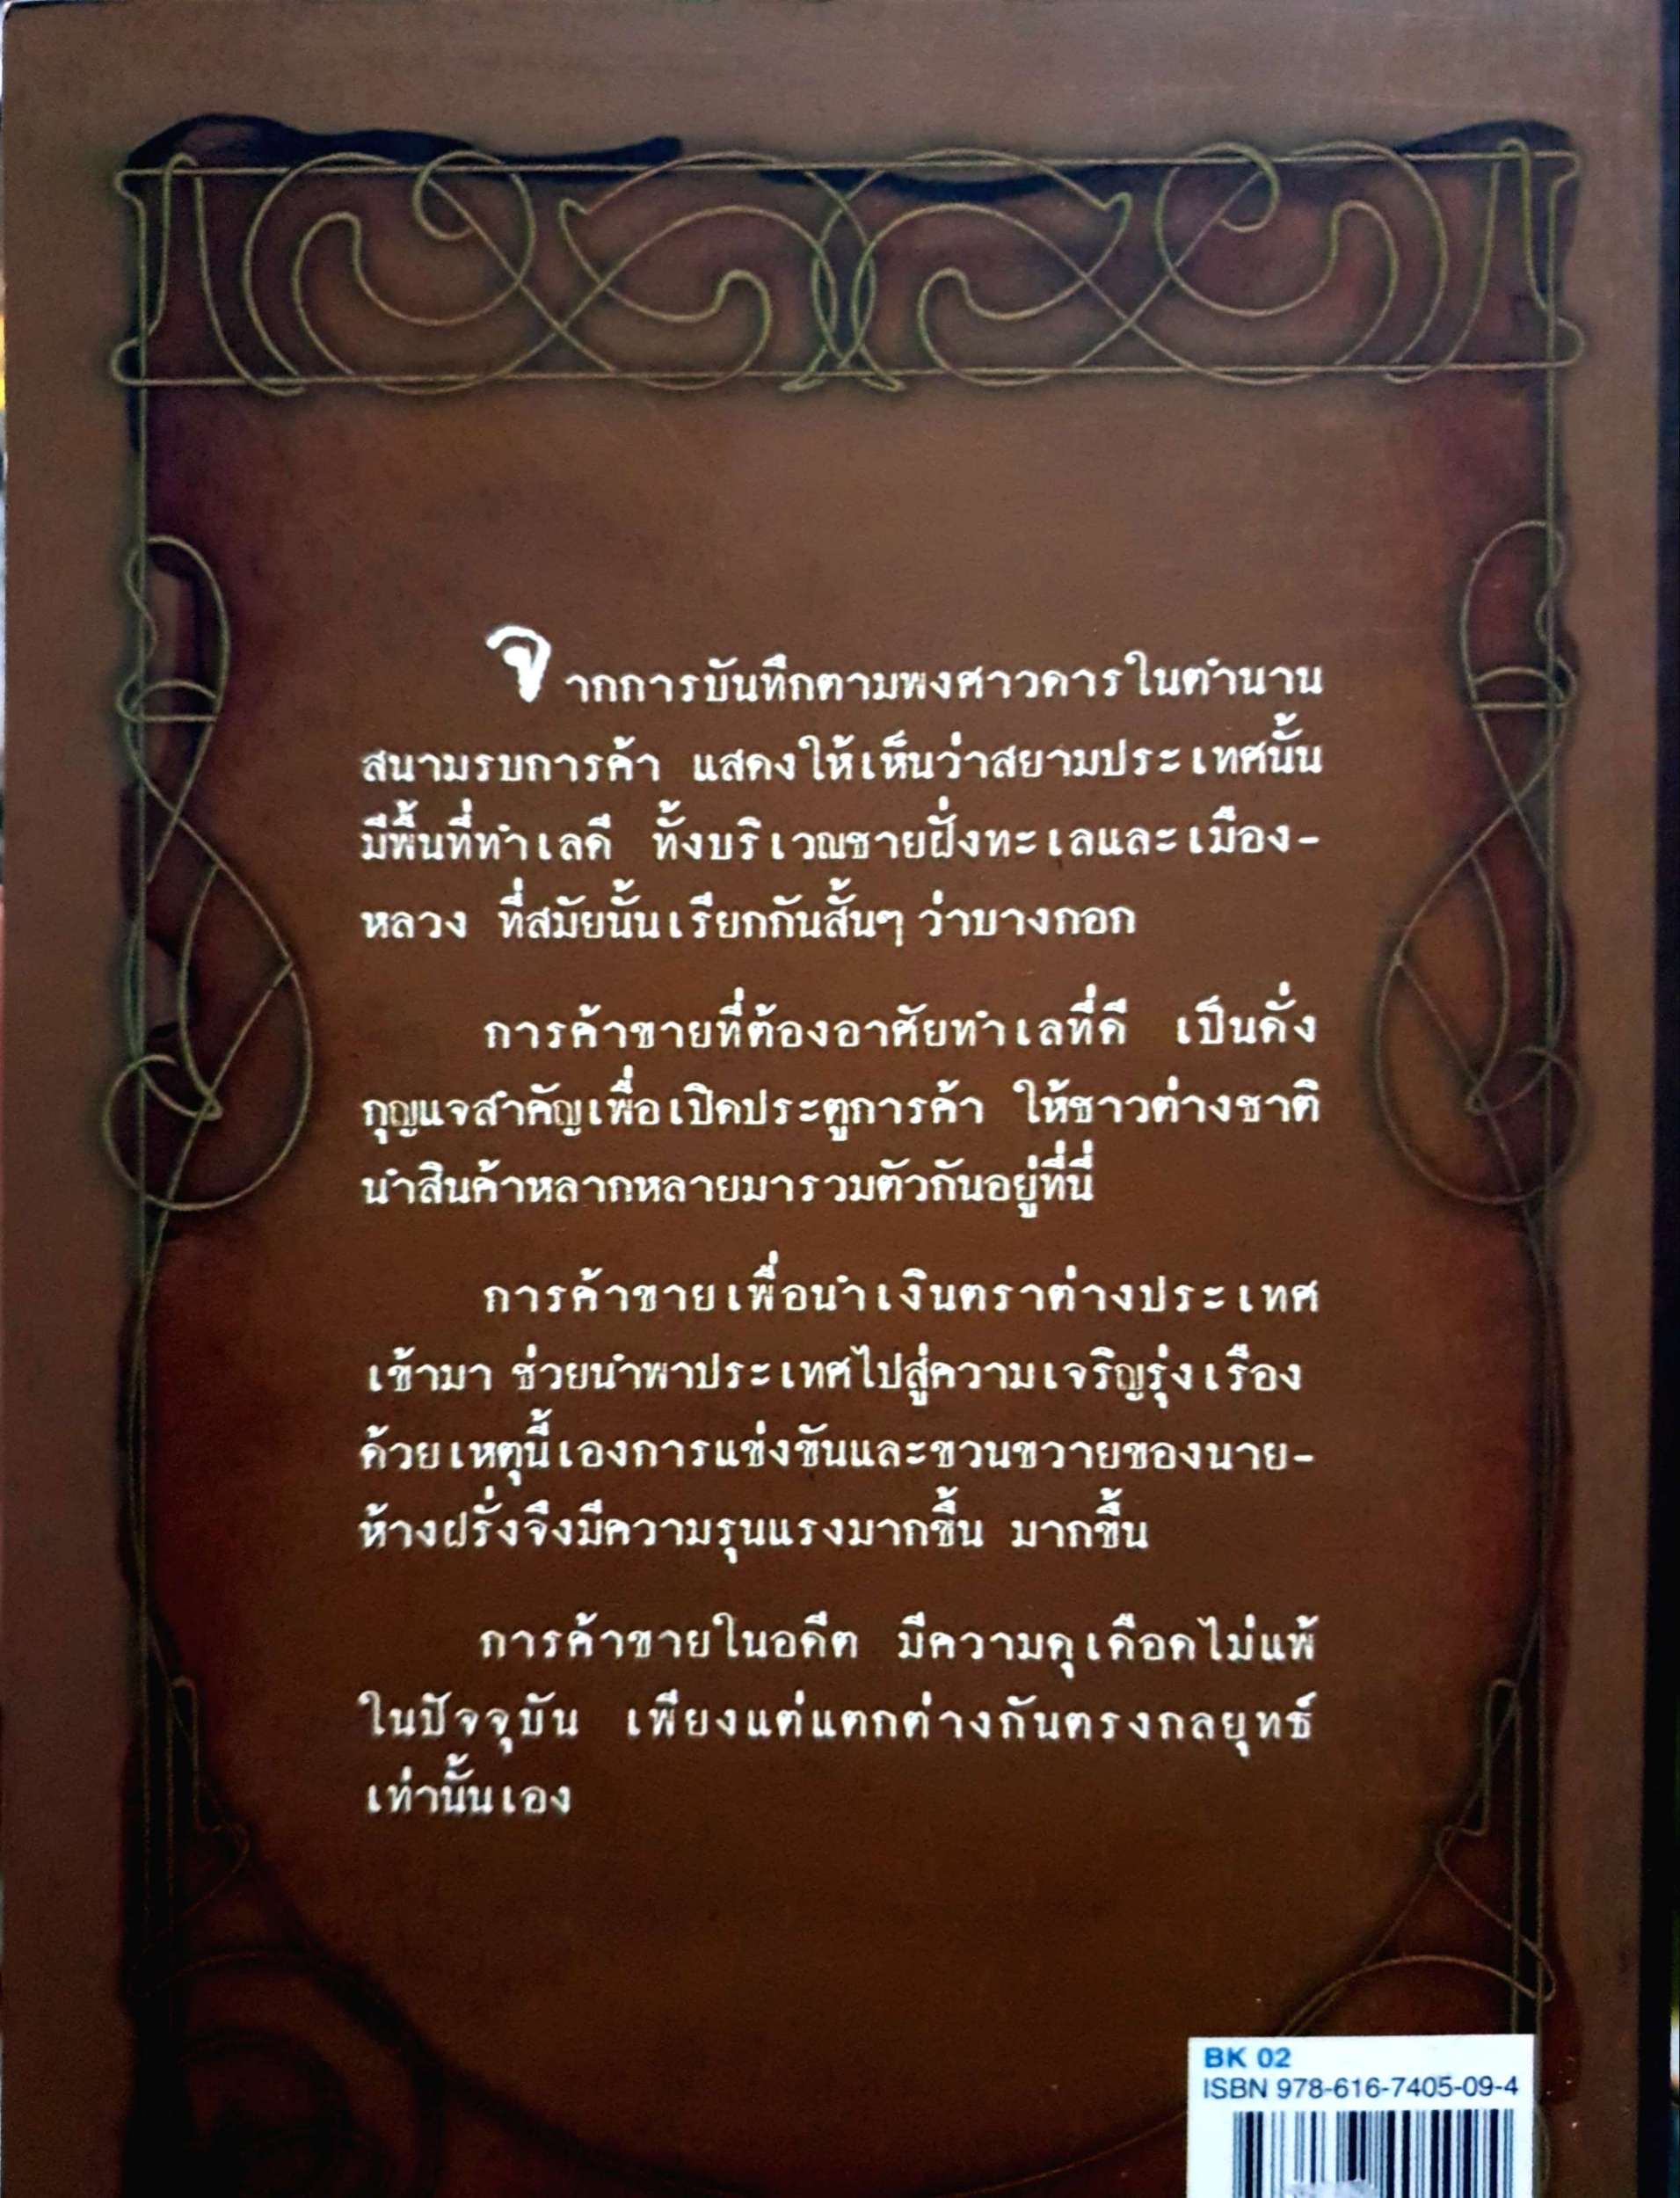 จากการบันทึกตามพงศาวดารในตำนาน
สนามรบการค้า แสดงให้เห็นว่าสยามประเทศนั้น
มีพื้นที่ทำเลดี ทั้งบริเวณชายฝั่งทะเลและเมือง-
หลวง ที่สมัยนั้นเรียกกันสั้นๆ ว่าบางกอก
การค้าขายที่ต้องอาศัยทำเลที่ดี เป็นดั่ง
กุญแจสำคัญเพื่อเปิดประตูการค้า ให้ชาวต่างชาติ
นำสินค้าหลากหลายมารวมตัวกันอยู่ที่นี่
การค้าขายเพื่อนำเงินตราต่างประเทศ
เข้ามา ช่วยนำพาประเทศไปสู่ความเจริญรุ่งเรือง
ด้วยเหตุนี้เองการแข่งขันและขวนขวายของนาย-
ห้างฝรั่งจึงมีความรุนแรงมากขึ้น มากขึ้น
การค้าขายในอดีต มีความดุเดือดไม่แพ้
ในปัจจุบัน เพียงแต่แตกต่างกันตรงกลยุทธ์
เท่านั้นเอง
BK 02
ISBN 978-616-7405-09-4